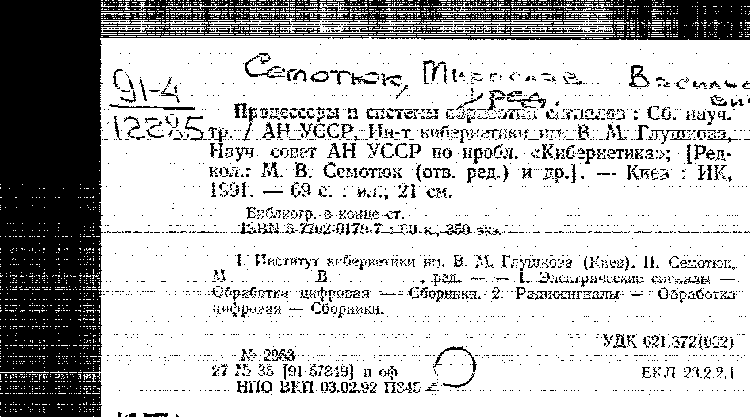 Семотюк, Мирослав Василье
вич
91-4
12285
ред.
Процессоры и системы обработки сигналов : Сб. науч.
тр. / АН УССР, Ин-т кибернетики им. В. М. Глушкова,
Науч. совет АН УССР по пробл. «Кибернетика»; [Ред-
кол.: М. В. Семотюк (отв. ред.) и др.]. — Киев : ИК,
1991. — 69 с. : ил.; 21 см.
Библиогр. в конце ст.
ISBN 5-7702-0179-7 : 60 к., 350 экз.
I. Институт кибернетики им. В. М. Глушкова (Киев). II. Семотюк,
М В , ред. — — 1. Электрические сигналы —
Обработка цифровая — Сборники. 2. Радиосигналы — Обработка
цифровая — Сборники.
УДК 621.372(082)
№ 2063
27 № 35 [91-57849] п оф
ЕКЛ 23.2.2.1
НПО ВКП 03.02.92 П345